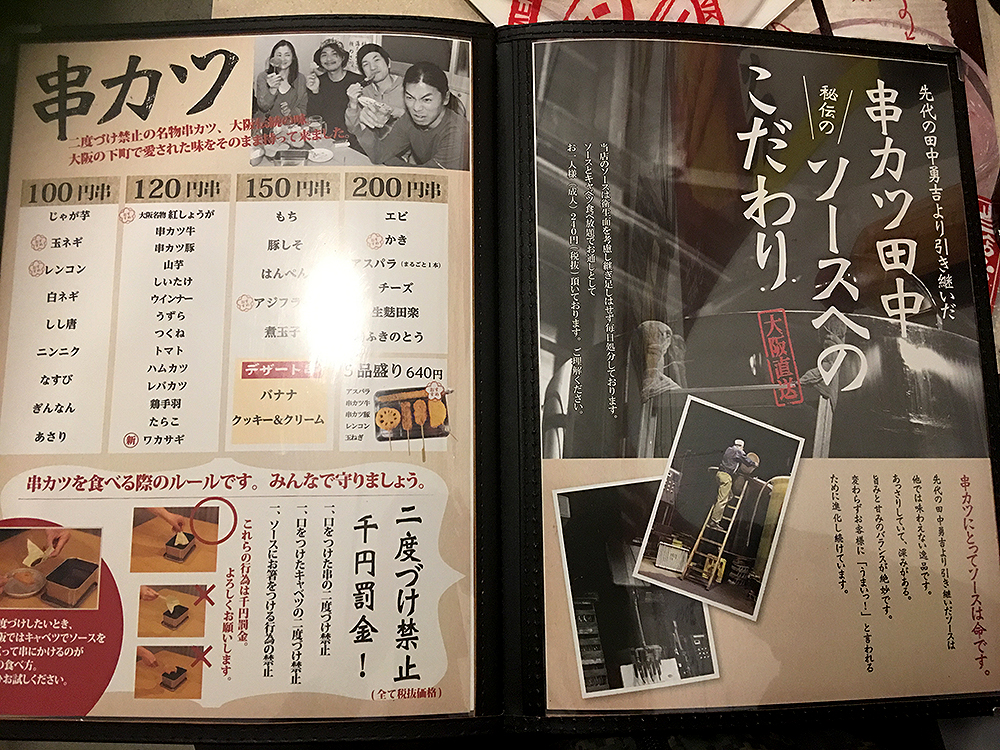 串カツ
二度づけ禁止の名物串カツ、大阪
大阪の下町で愛された味をそのまま持って来ました。
100円串
じゃが芋
玉ネギ
レンコン
白ネギ
しし唐
ニンニク
なすび
ぎんなん
あさり
120円串
大阪名物 紅しょうが
串カツ牛
串カツ豚
山芋
しいたけ
ウインナー
うずら
つくね
トマト
ハムカツ
レバカツ
鶏手羽
たらこ
新 ワカサギ
150円串
もち
豚しそ
はんぺん
アジフラ
煮玉子
デザート
バナナ
クッキー&クリーム
200円串
エビ
かき
アスパラ(まるごと1本)
チーズ
生麩田楽
ふきのとう
5品盛り 640円
アスパラ
串カツ牛
串カツ豚
レンコン
玉ねぎ
串カツを食べる際のルールです。みんなで守りましょう。
二度づけ禁止
千円罰金!
一、口をつけた串の二度づけ禁止
一、口をつけたキャベツの二度づけ禁止
一、ソースにお箸をつける行為の禁止
これらの行為は千円罰金。
よろしくお願いします。
(全て税抜価格)
度づけしたいとき、
阪ではキャベツでソースを
って串にかけるのが
の食べ方。
お試しください。
先代の田中勇吉より引き継いだ
串カツ田中
秘伝の
ソースへの
こだわり
大阪直送
当店のソースは衛生面を考慮し継ぎ足しはせず毎日処分しております。
ソースとキャベツ食べ放題でお通しとして
お一人様(成人)210円(税抜)頂いております。ご理解ください。
串カツにとってソースは命です。
先代の田中勇吉より引き継いだソースは
他では味わえない逸品です。
あっさりしていて、深みがある。
旨みと甘みのバランスが絶妙です。
変わらずお客様に「うまいっ!」と言われる
ために進化し続けています。